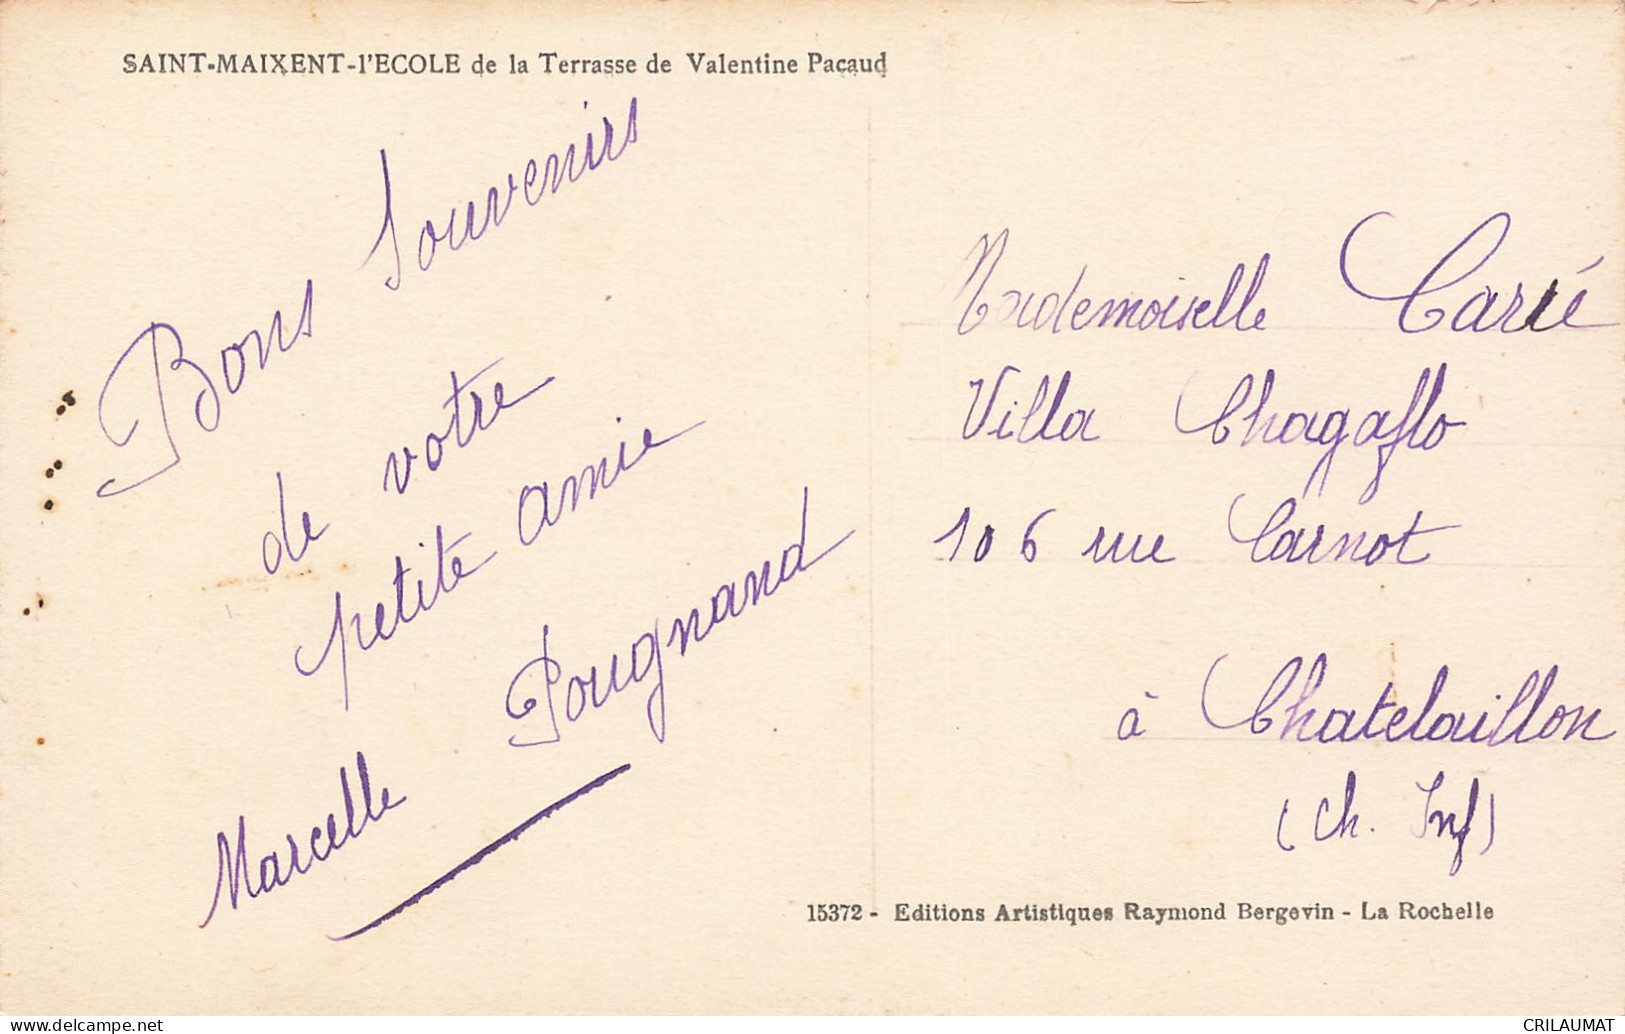 SAINT-MAIXENT-l'ECOLE de la Terrasse de Valentine Pacaud
Bons Souvenirs
de votre
petite amie
Marcelle Pougnand
Mademoiselle Carié
Villa Chagaflo
106 rue Carnot
à Chatelaillon
(Ch. Inf)
15372 - Editions Artistiques Raymond Bergevin - La Rochelle
CRILAUMAT